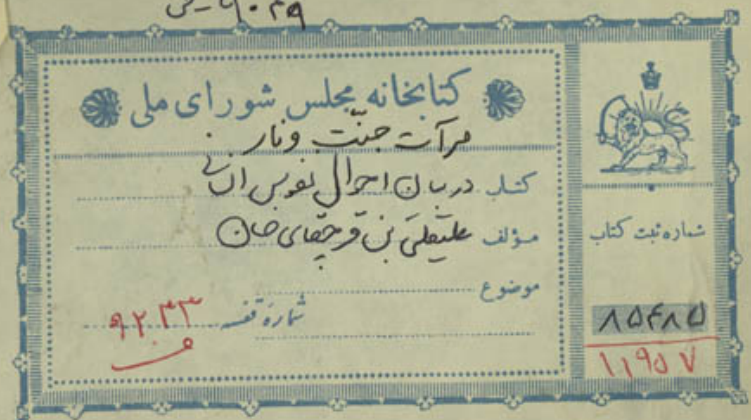 ۹۰۴۹
کتابخانه مجلس شورای ملی
مرآت جنّت و نار
کتاب در بیان احوال نفوس انسانی
مؤلف علیقلی بن قرچقای خان
موضوع
شمارهٔ قفسه ۹۲۳۳
شماره ثبت کتاب
۸۵۴۸۵
۱۱۹۵۷